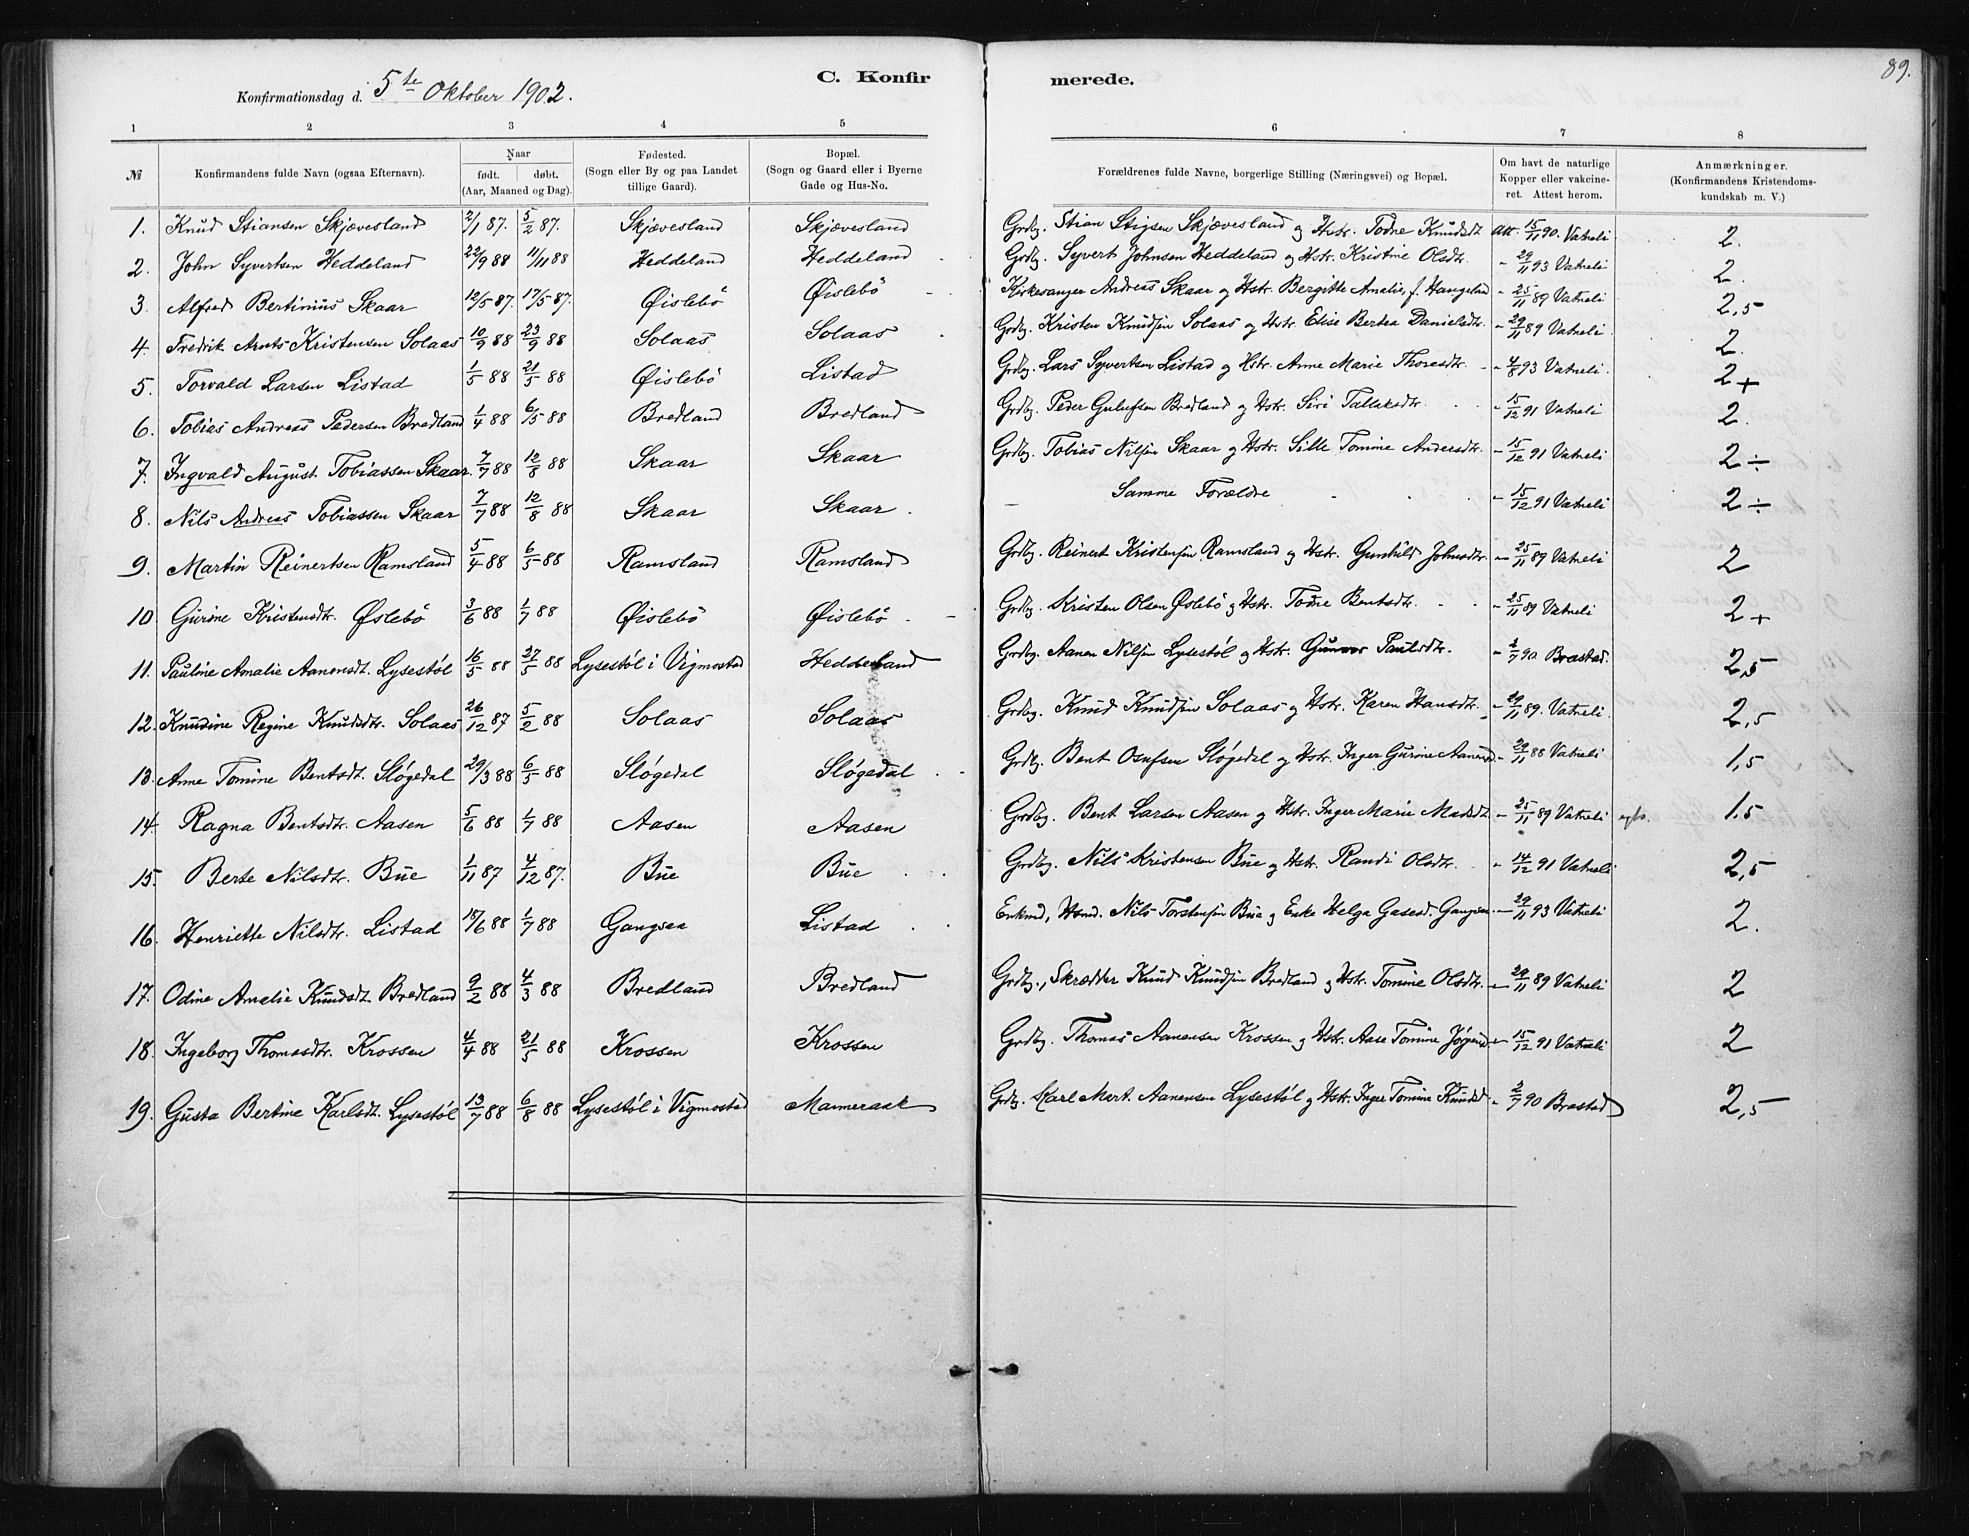 89.
C. Konfirmerede.
Konfirmationsdag d. 5te Oktober 1902.
1 2 3 4 5 6 7 8
№ Konfirmandens fulde Navn (ogsaa Efternavn). Naar født. døbt. (Aar, Maaned og Dag). Fødested. (Sogn eller By og paa Landet tillige Gaard). Bopæl. (Sogn og Gaard eller i Byerne Gade og Hus-No. Forældrenes fulde Navne, borgerlige Stilling (Næringsvei) og Bopæl. Om havt de naturlige Kopper eller vakcineret. Attest herom. Anmærkninger. (Konfirmandens Kristendomskundskab m. V.)
1. Knud Stiansen Skjævesland 2/1 87. 5/2 87. Skjævesland Skjævesland Grdbg. Stian Stigsen Skjævesland og Hstr. Todne Knudsdt. Att. 15/11 90. Vatneli 2.
2. John Syvertsen Heddeland 22/9 88 11/11 88 Heddeland Heddeland Grdbg. Syvert Johnsen Heddeland og Hstr. Kristine Olsdtr. - 29/11 93 Vatneli 2.
3. Alfred Bertinius Skaar 12/5 87. 17/5 87. Øislebö Øislebö Kirkesanger Andreas Skaar og Hstr. Bergitte Amalie, f. Haugeland - 25/11 89 Vatneli 2,5
4. Fredrik Arnts Kristensen Solaas 10/9 88 23/9 88 Solaas Solaas Grdbg. Kristen Knudsen Solaas og Hstr. Elise Bertea Danielsdtr. - 29/11 89 Vatneli 2.
5. Torvald Larsen Listad 1/5 88 21/5 88 Øislebö Listad Grdbg. Lars Syvertsen Listad og Hstr. Anne Marie Thoresdtr. - 4/8 93 Vatneli. 2+
6. Tobias Andreas Pedersen Bredland 1/4 88 6/5 88 Bredland Bredland Grdbg. Peder Gulufsen Bredland og Hstr. Siri Tallaksdtr. - 15/12 91 Vatneli 2.
7. Ingvald August Tobiassen Skaar. 7/7 88 12/8 88 Skaar Skaar Grdbg. Tobias Nilsen Skaar og Hstr. Sille Tomine Andersdtr. - 15/12 91 Vatneli 2÷
8. Nils Andreas Tobiassen Skaar 7/7 88 12/8 88 Skaar Skaar. - Samme Forældre - 15/12 91 Vatneli 2÷
9. Martin Reinertsen Ramsland 5/4 88 6/5 88 Ramsland Ramsland Grdbg. Reinert Kristensen Ramsland og Hstr. Gunhild Johnsdtr. - 25/11 89 Vatneli 2
10 Gurine Kristensdtr. Øslebö 3/6 88 1/7 88 Øislebö Øislebö Grdbg. Kristen Olsen Øslebö og Hstr. Todne Bentsdtr. - 25/11 89 Vatneli 2+
11. Pauline Amalie Aanensdt. Lysestøl 16/5 88 27/5 88 Lysestøl i Vigmostad Heddeland Grdbg. Aanen Nilsen Lysestøl og Hstr. Gunvor Paulsdtr. - 2/7 90 Brastad. 2,5
12. Knudine Regine Knudsdtr. Solaas 26/12 87 5/2 88 Solaas Solaas Grdbg. Knud Knudsen Solaas og Hstr. Karen Hansdtr. - 29/11 89. Vatneli. 2,5
13. Anne Tomine Bentsdt. Sløgedal 29/3 88 6/5 88 Sløgedal Sløgedal Grdbg. Bent Osufsen Sløgedal og Hstr. Inger Gurine Aanensd - 29/11 88 Vatneli 1,5
14. Ragna Bentsdtr. Aasen 5/6 88 1/7 88 Aasen Aasen Grdbg. Bent Larsen Aasen og Hstr. Inger Marie Madsdt. - 25/11 89 Vatneli 1,5
15. Berte Nilsdtr. Bue 1/11 87 4/12 87. Bue Bue Grdbg. Nils Kristensen Bue og Hstr. Randi Olsdtr. - 14/12 91 Vatneli 2,5
16. Henriette Nilsdtr. Listad 18/6 88 1/7 88 Gangsaa Listad Enkmd, Hmd. Nils Torstensen Bue og Enke Helga Gasesd. Gangsaa - 29/11 93 Vatneli 2.
17. Odine Amalie Knudsdt. Bredland 9/2 88 4/3 88 Bredland Bredland Grdbg., Skrædder Knud Knudsen Bredland og Hstr. Tomine Olsdtr. - 29/11 89 Vatneli 2
18. Ingeborg Thomasdtr. Krossen 4/4 88 21/5 88 Krossen Krossen Grdbg. Thomas Aanensen Krossen og Hstr. Aase Tomine Jørgensd - 15/12 91 Vatneli 2
19. Gusta Bertine Karlsdt. Lysestøl 13/7 88 6/8 88 Lysestøl i Vigmostad Mameraak Grdbg. Karl Mert. Aanensen Lysestøl og Hstr. Inger Tomine Knudsd. - 2/7 90 Brastad 2,5